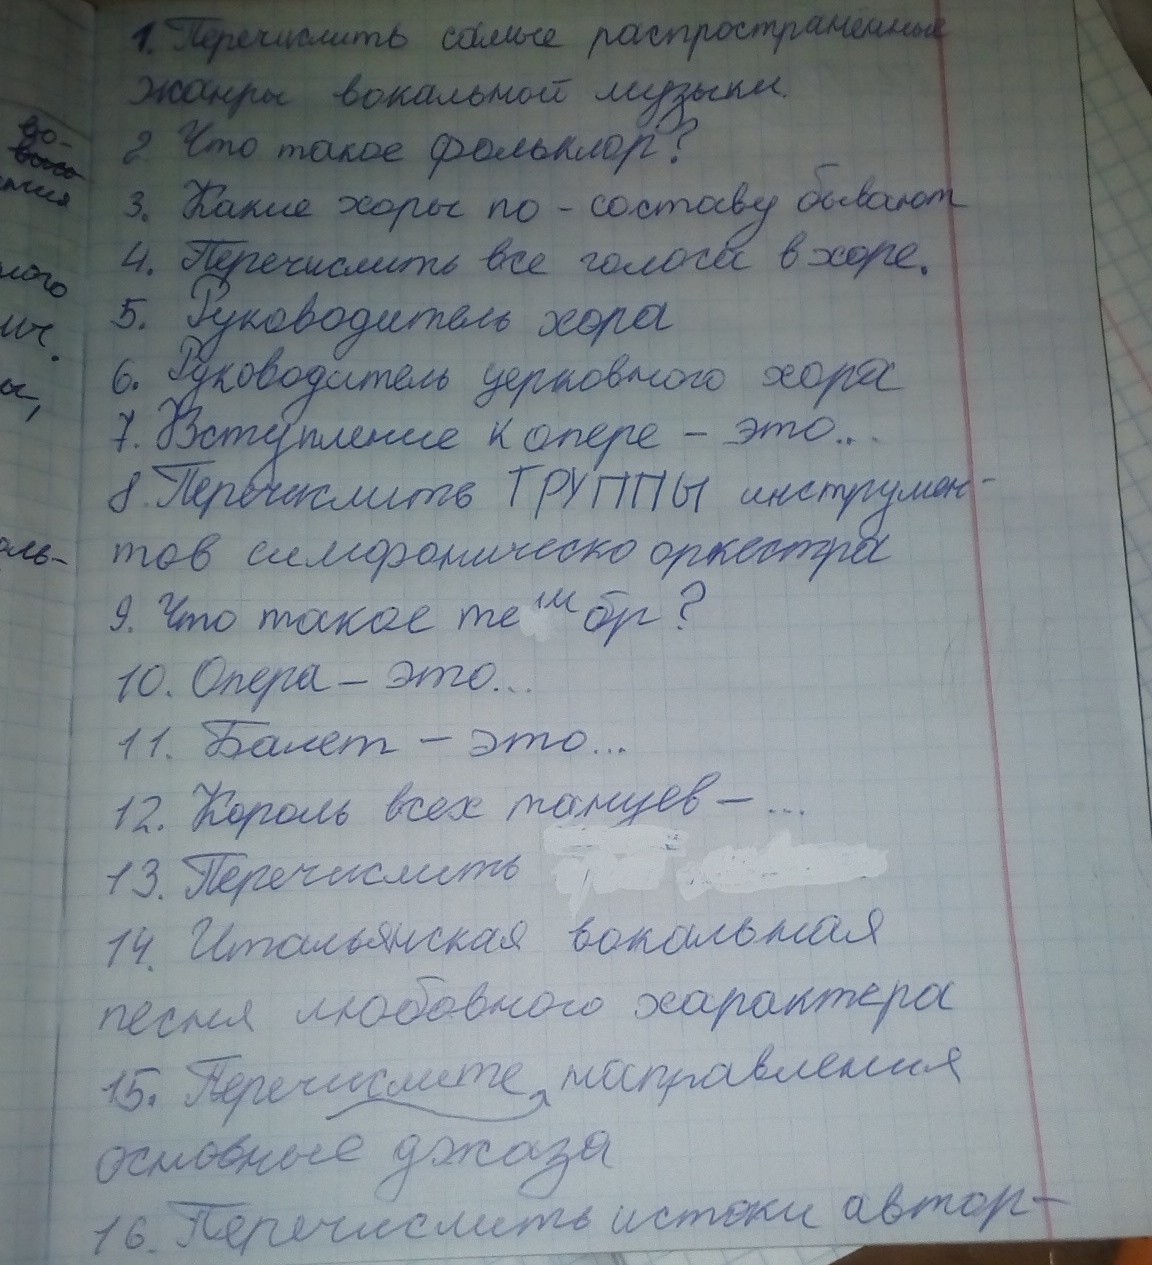 1. Перечислить самые распространённые
жанры вокальной музыки.
2 Что такое фольклор?
3. Какие хоры по - составу бывают
4. Перечислить все голоса в хоре.
5. Руководитель хора
6. Руководитель церковного хора
7. Вступление к опере - это...
8. Перечислить ГРУППЫ инструмен-
тов симфоническо оркестра
9. Что такое тембр?
10. Опера - это...
11. Балет - это...
12. Король всех танцев - ...
13. Перечислить
14. Итальянская вокальная
песня любовного характера
15. Перечислите направления
основные джаза
16. Перечислить истоки автор-
во-
ного
ич.
ы,
оль-